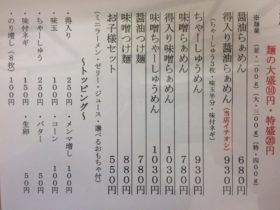 ※麺量
（並・２００ｇ）（大・３００ｇ）（特・４００ｇ）
麺の大盛１０円・特盛２０円
醤油らぁめん 680円
得入り醤油らぁめん 930円
（ちゃーしゅう３枚・味玉半分・味付ネギ）（当店イチオシ）
ちゃーしゅうめん 930円
味噌らぁめん 780円
得入り味噌らぁめん 1030円
味噌ちゃーしゅうめん 1030円
醤油つけ麺 780円
味噌つけ麺 880円
お子様セット 550円
（ミニラーメン・ゼリー・ジュース・選べるおもちゃ付）
～トッピング～
・得入り 250円
・メンマ増し 100円
・味玉 100円
・コーン 100円
・ちゃーしゅう
・バター 50円
・味付ネギ
・生卵 50円
・のり増し（８枚）100円